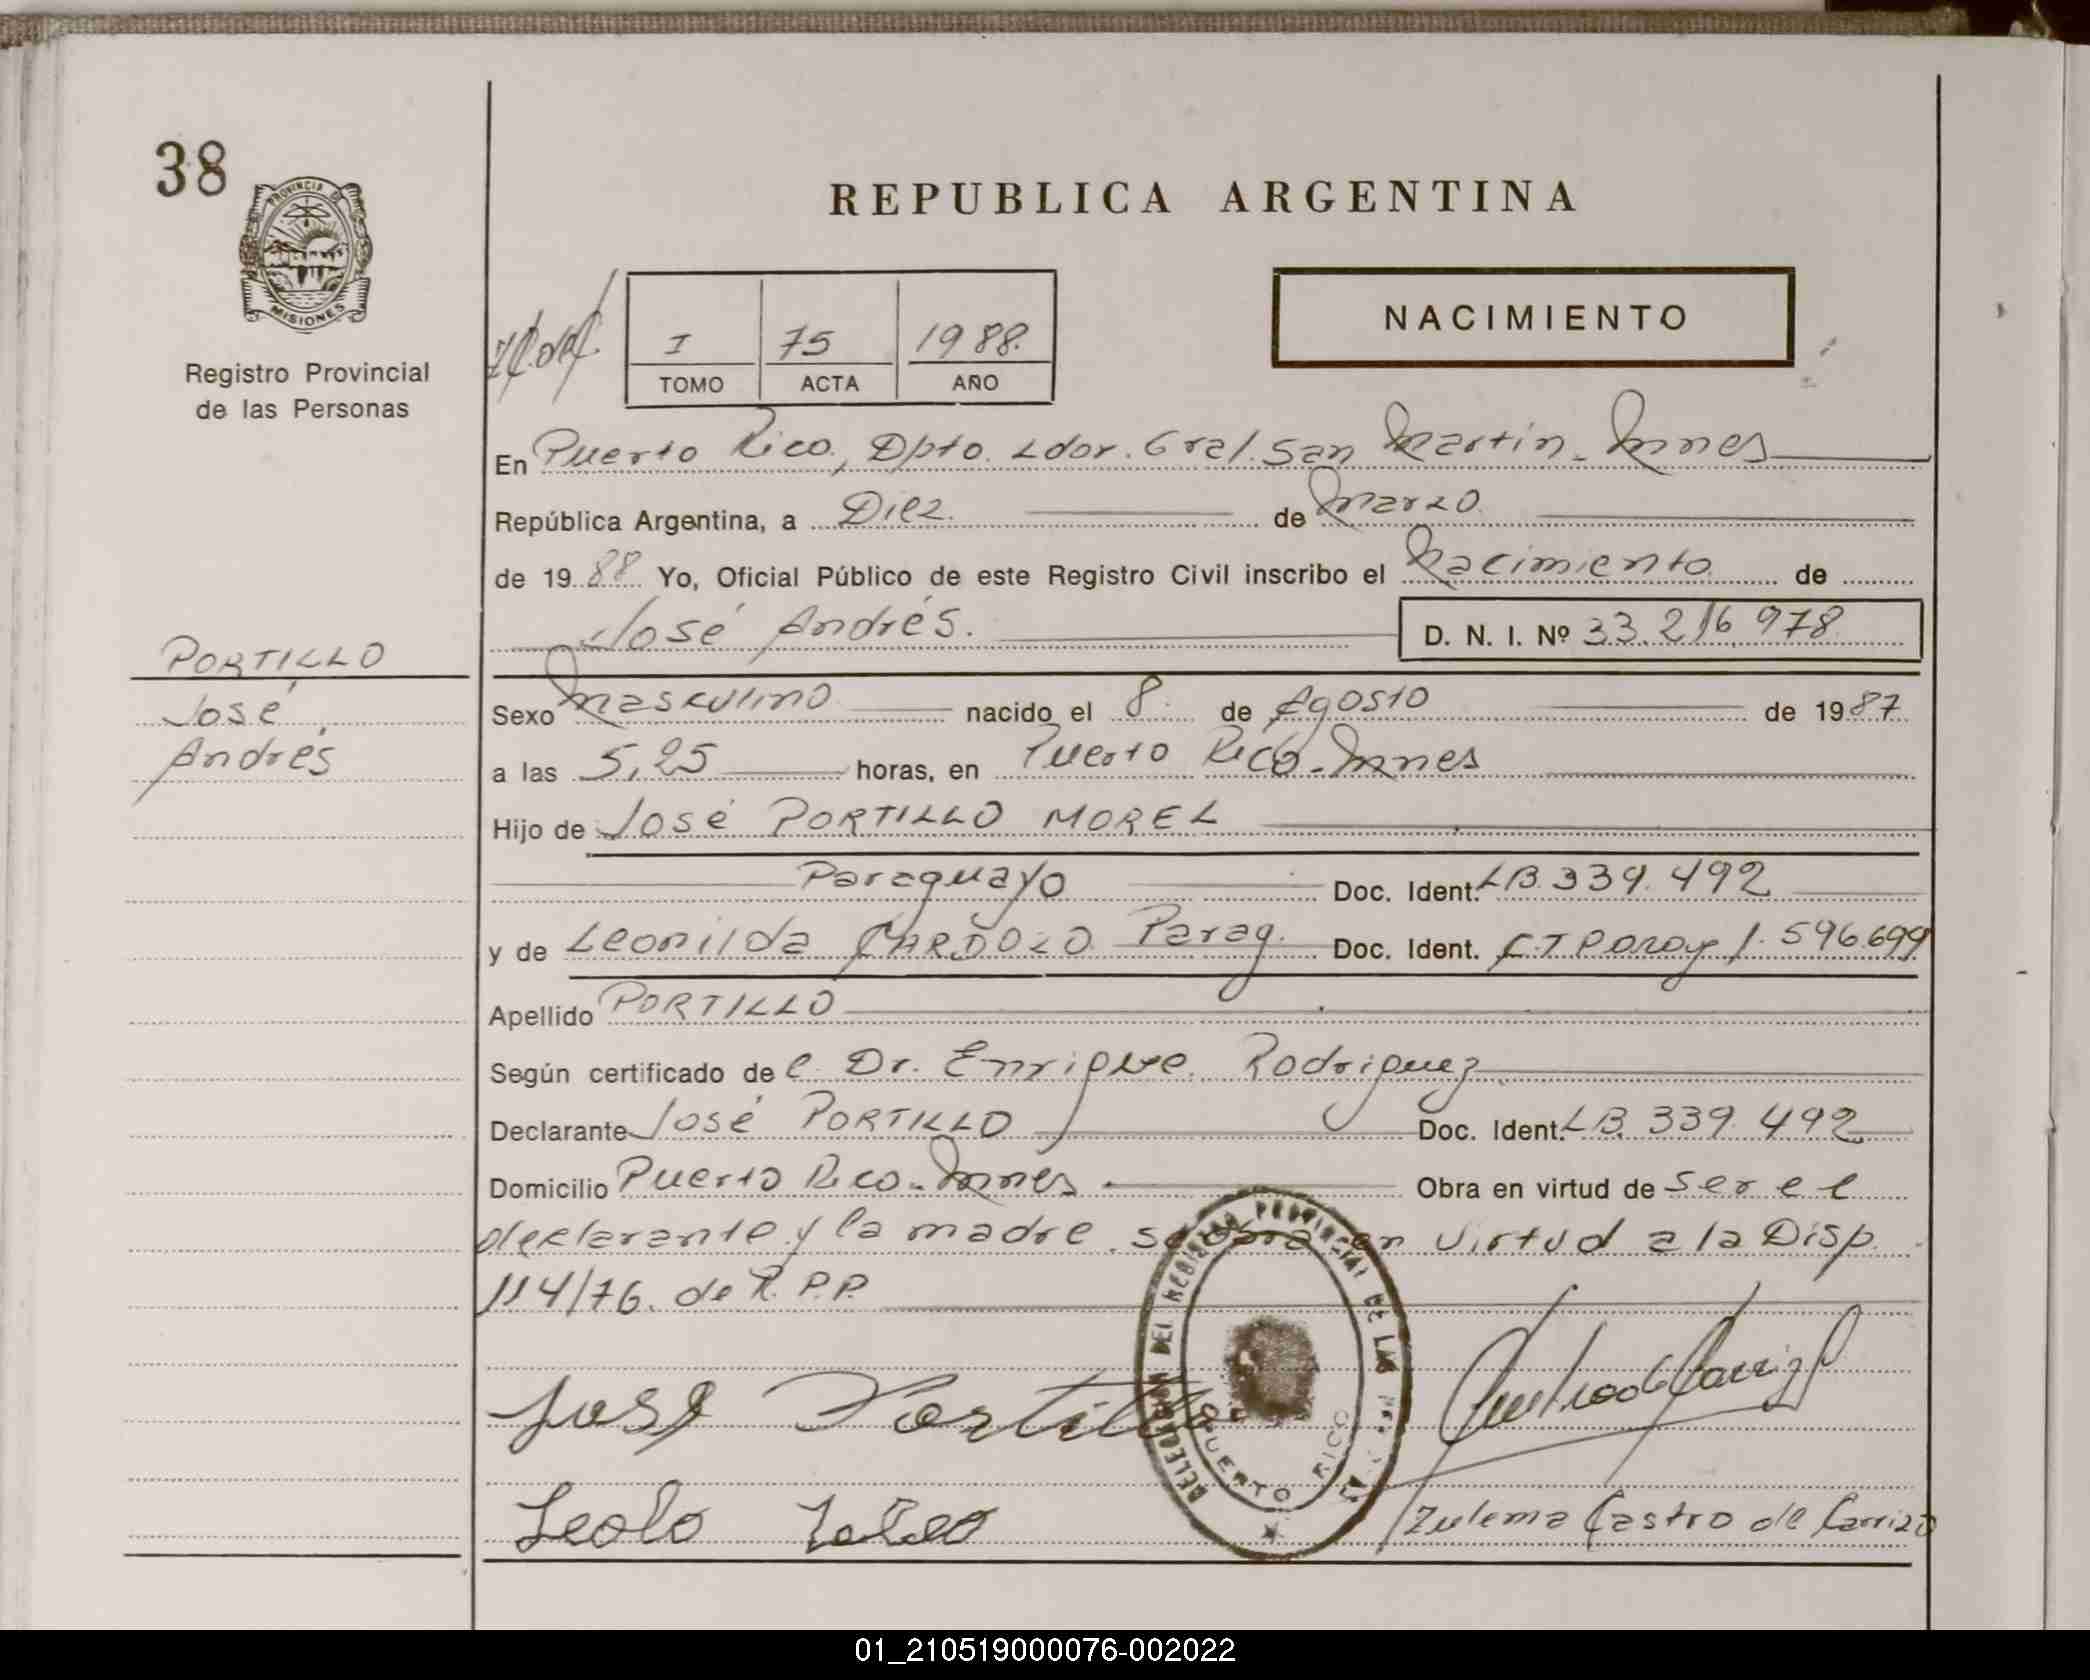 38
PROVINCIA DE
MISIONES
Registro Provincial
de las Personas
REPUBLICA ARGENTINA
I 75 1988.
TOMO ACTA AÑO
NACIMIENTO
En Puerto Rico, Dpto. Ldor. Gral. San Martín - Mnes
República Argentina, a Diez. de Marzo
de 1988 Yo, Oficial Público de este Registro Civil inscribo el Nacimiento de
José Andrés.
D. N. I. Nº 33.216 978
PORTILLO
José
Andrés
Sexo Masculino nacido el 8. de Agosto de 1987
a las 5,25 horas, en Puerto Rico - Mnes
Hijo de José PORTILLO MOREL
Paraguayo Doc. Ident. LB. 339.492
y de Leonilda CARDOZO Parag. Doc. Ident. C.I Paray 1.596.699
Apellido PORTILLO
Según certificado del Dr. Enrique Rodriguez
Declarante José PORTILLO Doc. Ident. LB. 339.492
Domicilio Puerto Rico - Mnes Obra en virtud de ser el
declarante y la madre. se obra en virtud a la Disp.
114/76. de R.P.P.
DELEGACION DEL REGISTRO PROVINCIAL DE LAS
PUERTO RICO
José Portillo
Zulema Castro de Carrizo
01_210519000076-002022